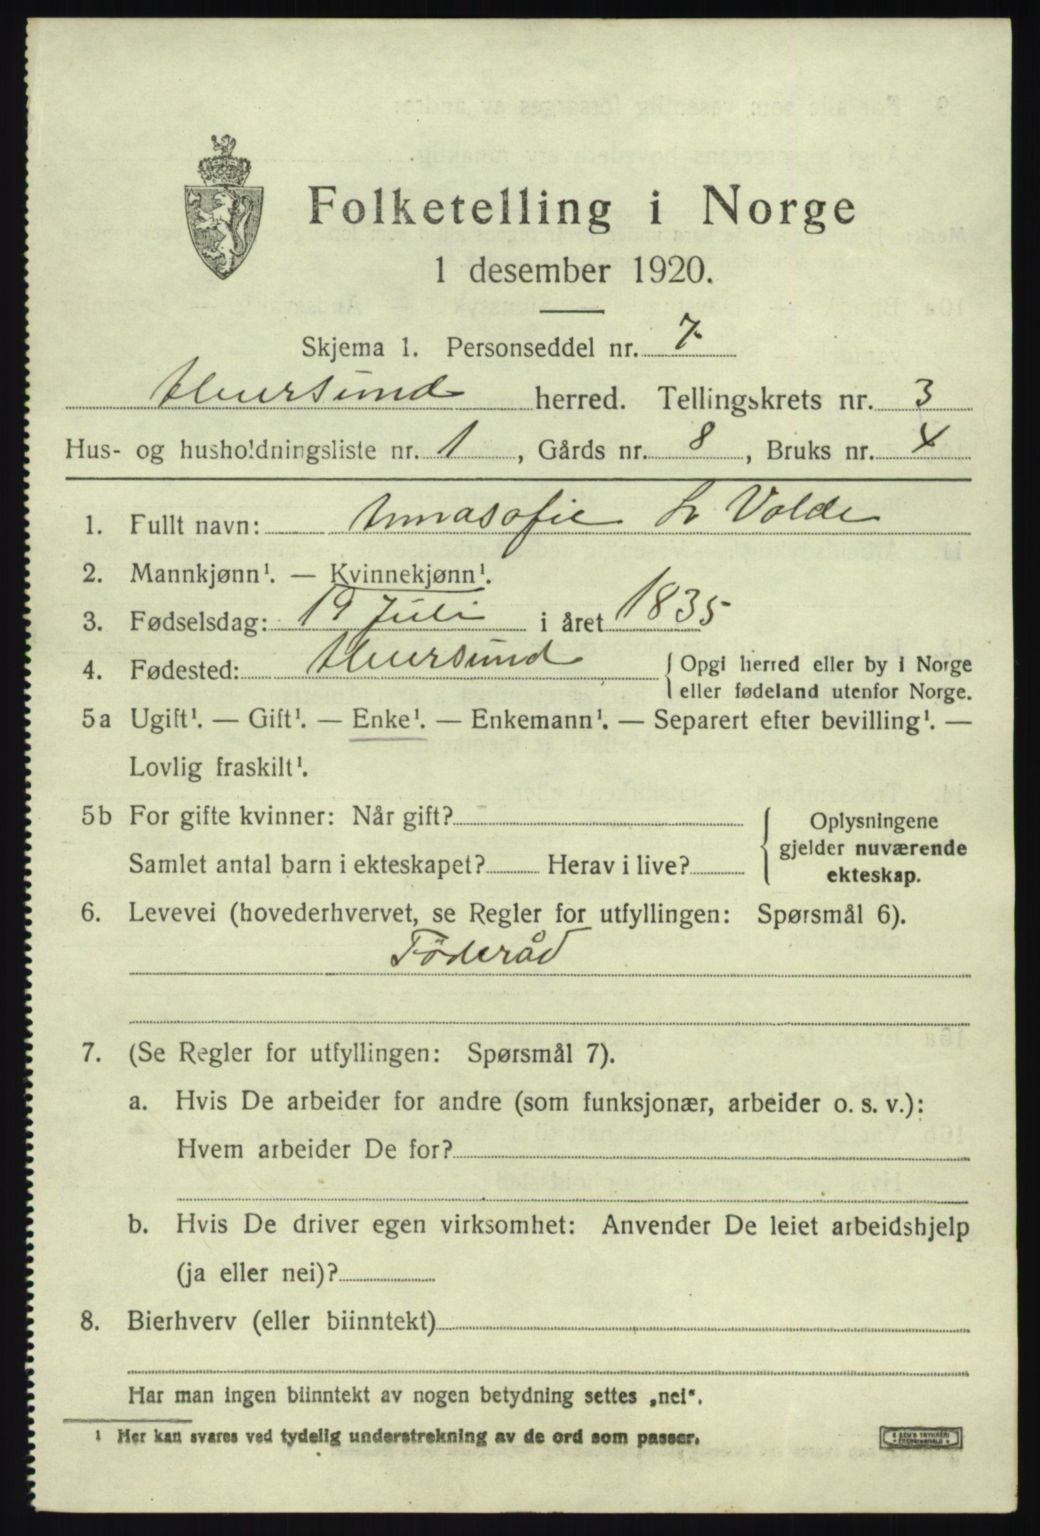 Folketelling i Norge
1 desember 1920.
Skjema 1. Personseddel nr. 7
Hvarsund herred. Tellingskrets nr. 3
Hus- og husholdningsliste nr. 1, Gårds nr. 8, Bruks nr. 4
1. Fullt navn: Annasofie L Volde
2. Mannkjønn¹. — Kvinnekjønn¹.
3. Fødselsdag: 19 Juli i året 1835
4. Fødested: Opgi herred eller by i Norge
eller fødeland utenfor Norge.
5a Ugift¹. — Gift¹. — Enke¹. — Enkemann¹. — Separert efter bevilling¹. —
Lovlig fraskilt¹.
5b For gifte kvinner: Når gift? Oplysningene
gjelder nuværende
Samlet antal barn i ekteskapet? Herav i live?
ekteskap.
6. Levevei (hovederhvervet, se Regler for utfyllingen: Spørsmål 6).
Föderåd
7. (Se Regler for utfyllingen: Spørsmål 7).
a. Hvis De arbeider for andre (som funksjonær, arbeider o. s. v.):
Hvem arbeider De for?
b. Hvis De driver egen virksomhet: Anvender De leiet arbeidshjelp
(ja eller nei)?
8. Bierhverv (eller biinntekt)
Har man ingen biinntekt av nogen betydning settes „nei“.
¹ Her kan svares ved tydelig understrekning av de ord som passer.